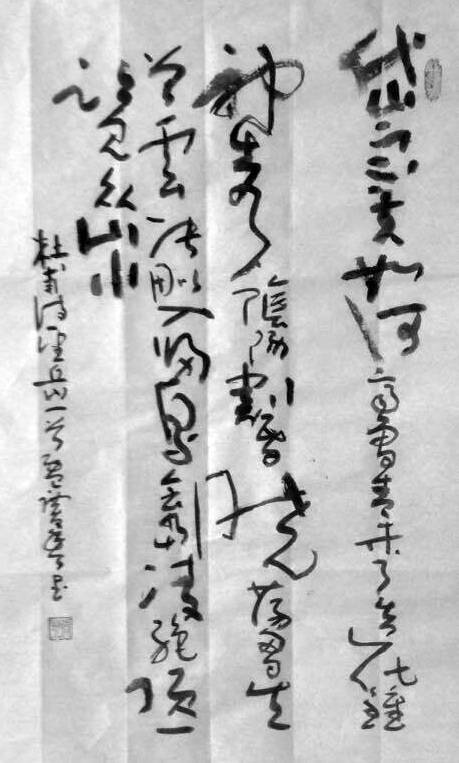 岱宗夫如何齊魯青未了造化鍾
神秀陰陽割昏曉蕩胸生
曾雲決眦入歸鳥會當凌絕頂一
覽众山小
杜甫詩望岳一首書